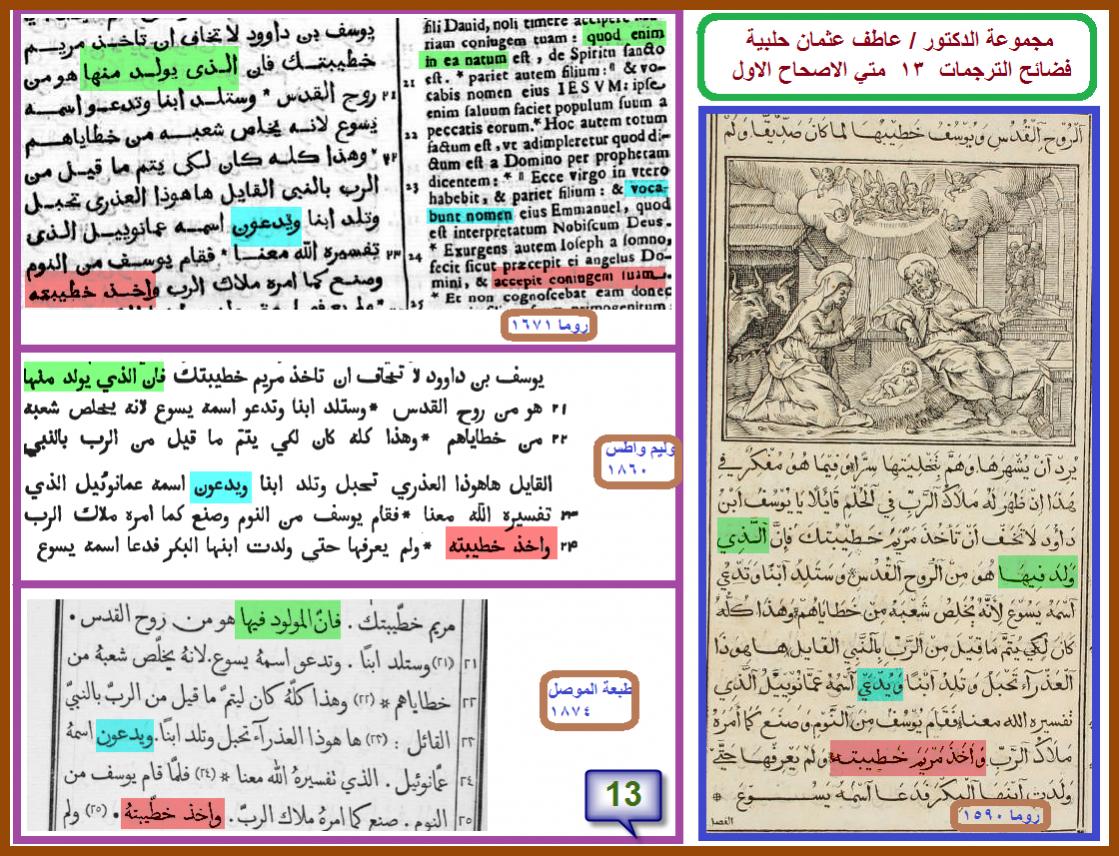 مجموعة الدكتور / عاطف عثمان حلبية
فضائح الترجمات ١٣ متي الاصحاح الاول
يوسف بن داوود لا تخاف ان تاخذ مريم
خطيبتك فان الذى يولد منها هو من
روح القدس * وستلد ابنا وتدعو اسمه
يسوع لانه يخلص شعبه من خطاياهم
* وهذا كله كان لكى يتم ما قيل من
الرب بالنبى القايل هاهوذا العذرى تحبل
وتلد ابنا ويدعون اسمه عمانوييل الذى
تفسيره الله معنا * فقام يوسف من النوم
وصنع كما امره ملاك الرب واخذ خطيبته
٢١
٢٢
٢٣
fili Dauid, noli timere accipere
riam coniugem tuam: quod enim
in ea natum est, de Spiritu sancto
est. * pariet autem filium: " & vo-
cabis nomen eius IESVM: ipse
enim saluum faciet populum suum a
peccatis eorum. * Hoc autem totum
factum est, vt adimpleretur quod di-
ctum est a Domino per prophetam
dicentem: * " Ecce virgo in vtero
habebit, & pariet filium: & voca-
bunt nomen eius Emmanuel, quod
est interpretatum Nobiscum Deus.
* Exurgens autem Ioseph a somno,
fecit sicut præcepit ei angelus Do-
mini, & accepit coniugem suam.
* Et non cognoscebat eam donec
primogenitum
21
22
23
24
25
روما ١٦٧١
يوسف بن داوود لا تخاف ان تاخذ مريم خطيبتك فان الذي يولد منها
٢١ هو من روح القدس * وستلد ابنا وتدعو اسمه يسوع لانه يخلص شعبه
٢٢ من خطاياهم * وهذا كله كان لكي يتم ما قيل من الرب بالنبي
القايل هاهوذا العذري تحبل وتلد ابنا ويدعون اسمه عمانوئيل الذي
٢٣ تفسيره الله معنا * فقام يوسف من النوم وصنع كما امره ملاك الرب
٢٤ واخذ خطيبته * ولم يعرفها حتى ولدت ابنها البكر فدعا اسمه يسوع
وليم واطس
١٨٦٠
مريم خطّيبتك . فانّ المولود فيها هو من روح القدس .
٢١ (٢١) وستلد ابنًا . وتدعو اسمهُ يسوع. لانهُ يخلّص شعبهُ من
٢٢ خطاياهم * (٢٢) وهذا كلّهُ كان ليتمّ ما قيل من الربّ بالنبيّ
٢٣ القائل : (٢٣) ها هوذا العذراء تحبل وتلد ابنًا. ويدعون اسمهُ
٢٤ عمّانوئيل . الذي تفسيرهُ الله معنا * (٢٤) فلمّا قام يوسف من
٢٥ النوم . صنع كما امرهُ ملاك الربّ . واخذ خطّيبتهُ . (٢٥) ولم
طبعة الموصل
١٨٧٤
13
الروح القدس ويوسف خطيبها لما كان صديقا ولم
يرد ان يشهرها وهم بتخليتها سرا وفيما هو مفكر في
هذا اذ ظهر له ملاك الرب في الحلم قائلا يا يوسف ابن
داؤد لا تخف ان تاخذ مريم خطيبتك فإن الذي
ولد فيها هو من الروح القدس وستلد ابنا وتدعي
اسمه يسوع لانه يخلص شعبه من خطاياهم وهذا كله
كان لكي يتم ما قيل من الرب بالنبي القايل ها هوذا
العذراء تحبل وتلد ابنا ويدعي اسمه عمانوييل الذي
تفسيره الله معنا فقام يوسف من النوم وصنع كما امره
ملاك الرب واخذ مريم خطيبته ولم يعرفها حتي
ولدت ابنها البكر فدعا اسمه يسوع *
الفصل
روما ١٥٩٠